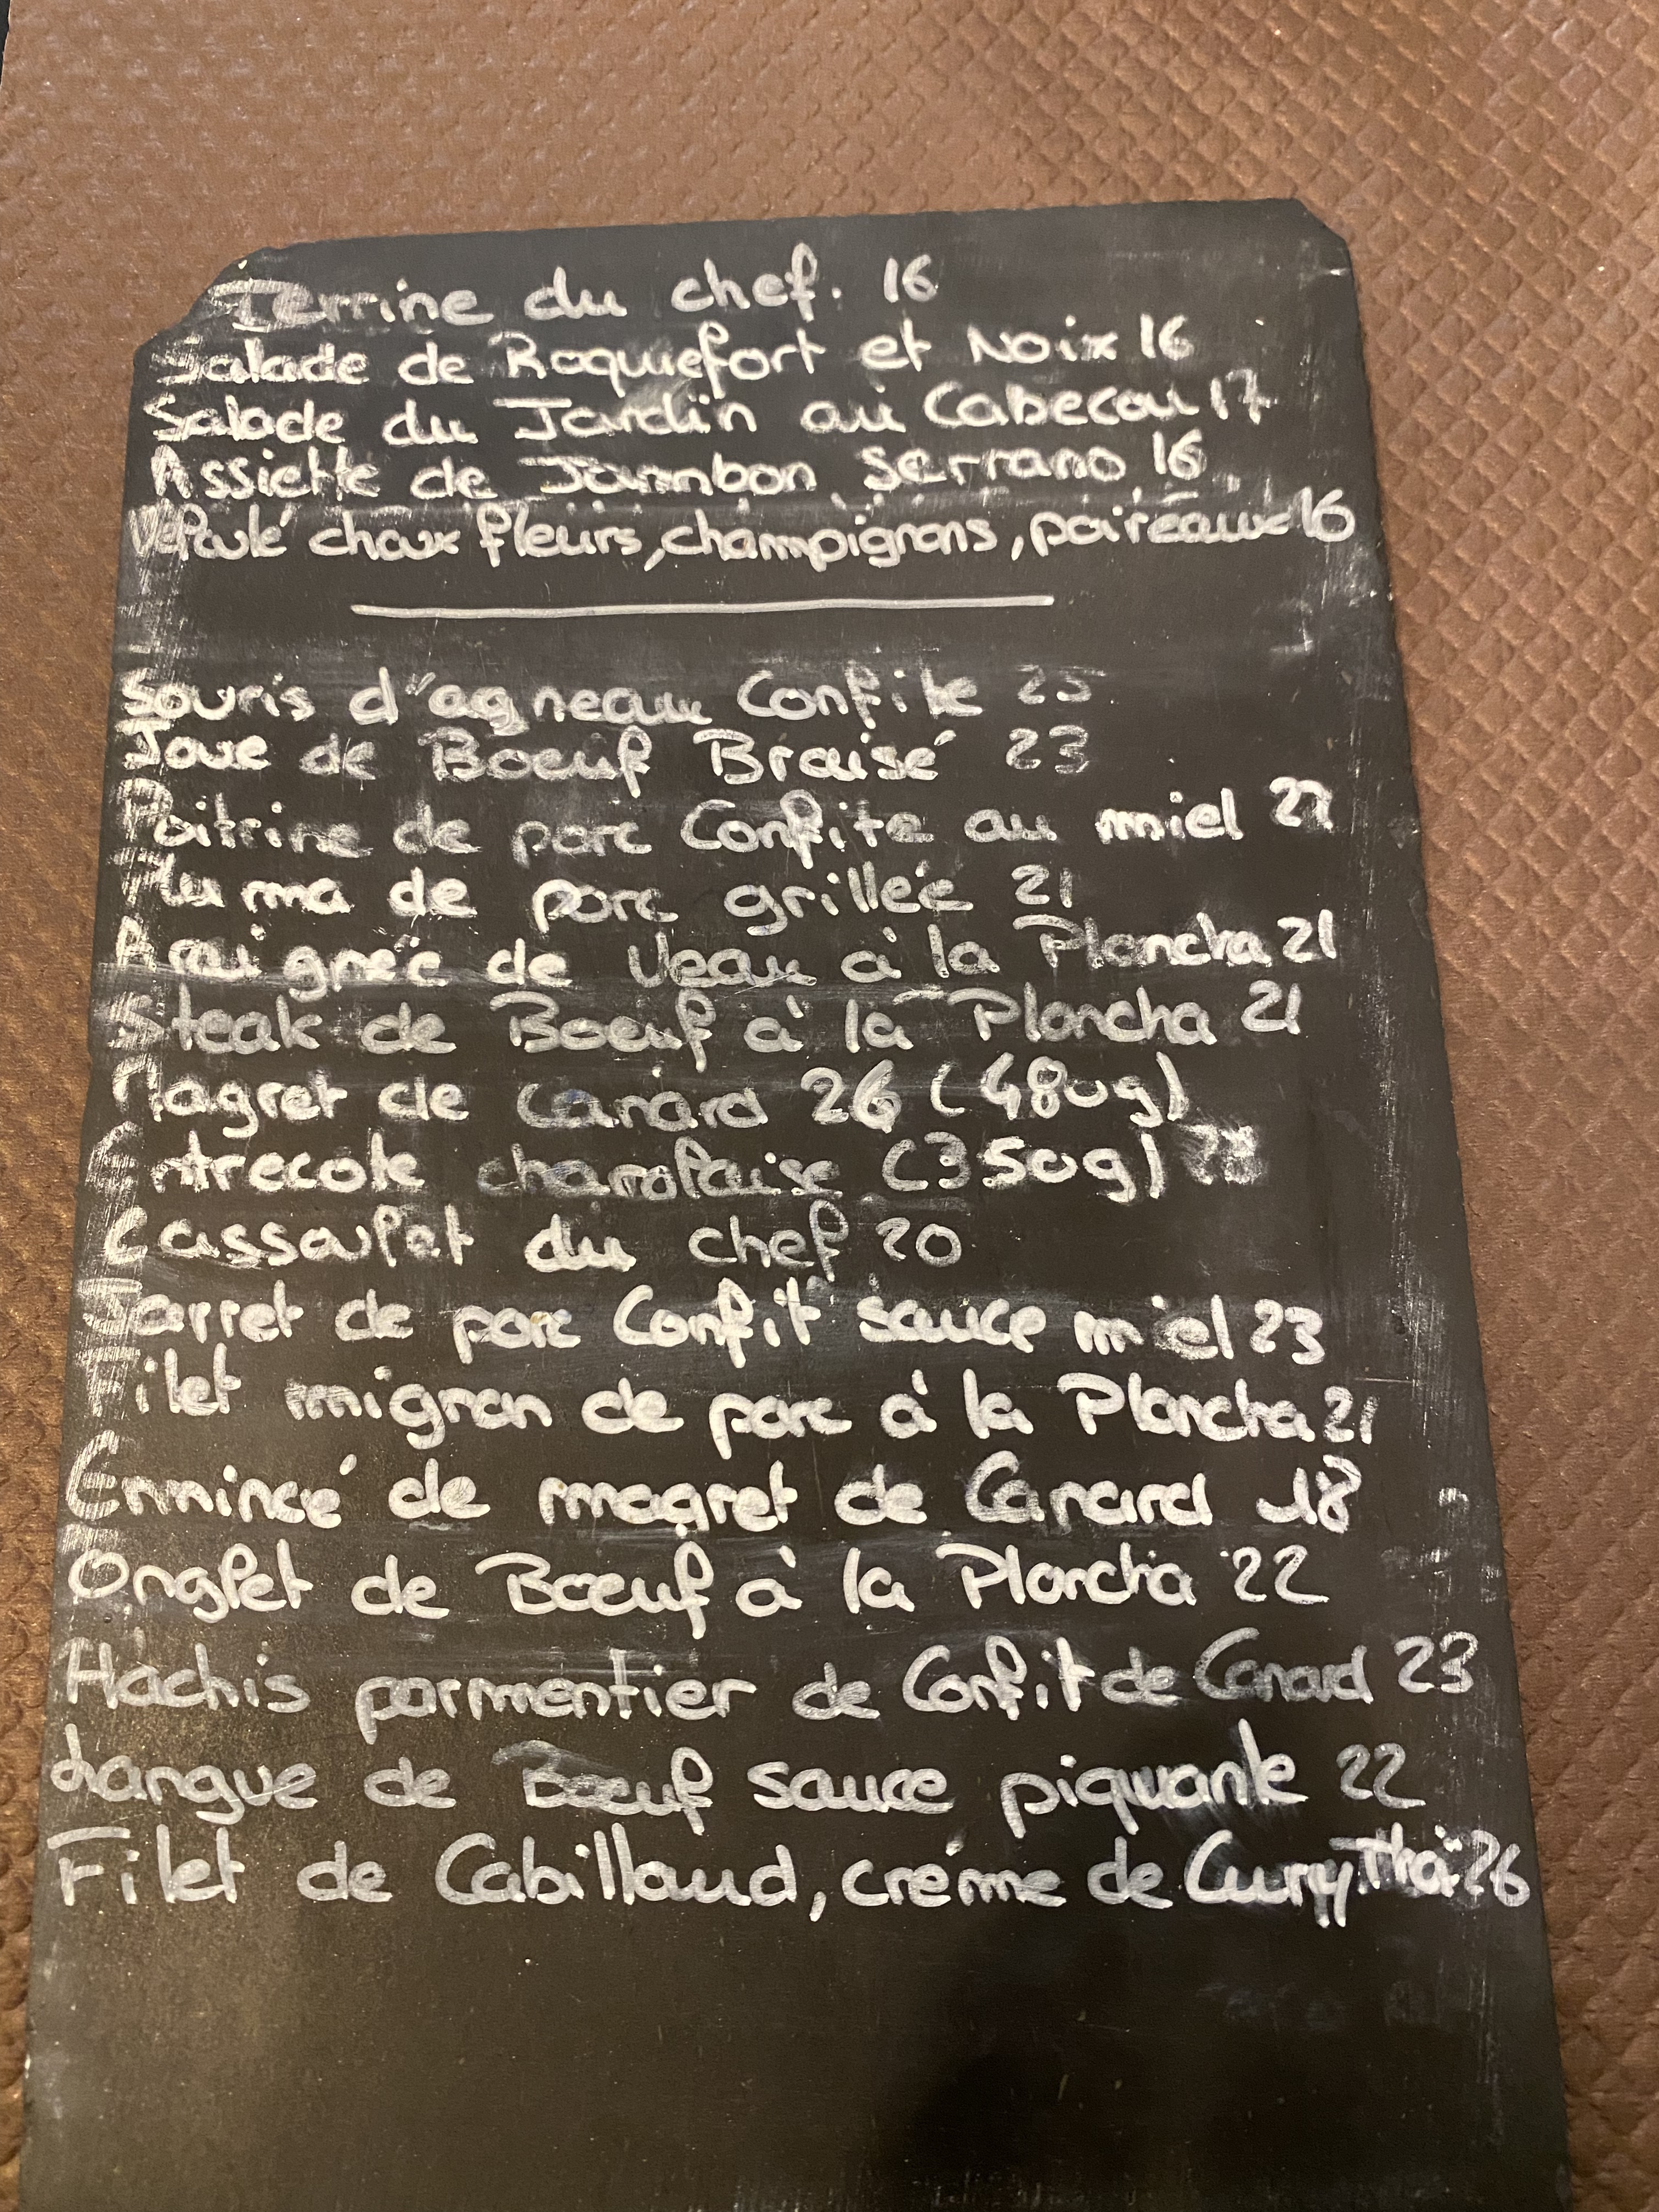 Terrine du chef. 16
Salade de Roquefort et Noix 16
Salade du Jardin au Cabecou 17
Assiette de Jambon Serrano 16
Velouté choux fleurs, champignons, poireaux 16
Souris d'agneau Confite 25
Joue de Boeuf Braisé 23
Poitrine de porc Confite au miel
Pluma de porc grillée 21
Araignée de Veau à la Plancha 21
Steak de Boeuf à la Plancha 21
Magret de Canard 26 (480g)
Entrecote charolaise (350g)
Cassoulet du chef 20
Jarret de porc Confit sauce miel 23
Filet mignon de porc à la Plancha 21
Emmincé de magret de Canard 18
Onglet de Boeuf à la Plancha 22
Hachis parmentier de Confit de Canard 23
Langue de Boeuf sauce piquante 22
Filet de Cabillaud, créme de Curry Thaï 26